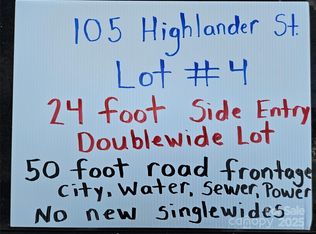 105 Highlander St.
Lot #4
24 foot Side Entry
Doublewide Lot
50 foot road frontage
City, Water, Sewer, Power
No new singlewides
Canopy 2025